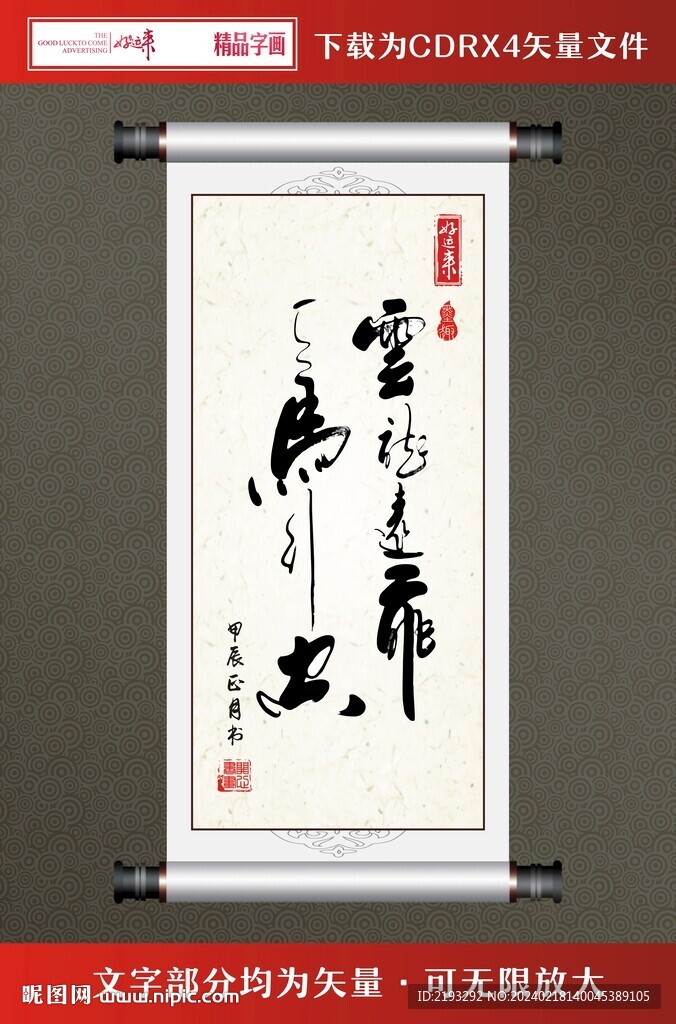 THE
GOOD LUCKTO COME
ADVERTISING
好运来
精品字画
下载为CDRX4矢量文件
好运来
墨趣
雲龍遠飛
天馬行空
甲辰正月书
文字部分均为矢量·可无限放大
昵图网 www.nipic.com
ID:2193292 NO:20240218140045389105